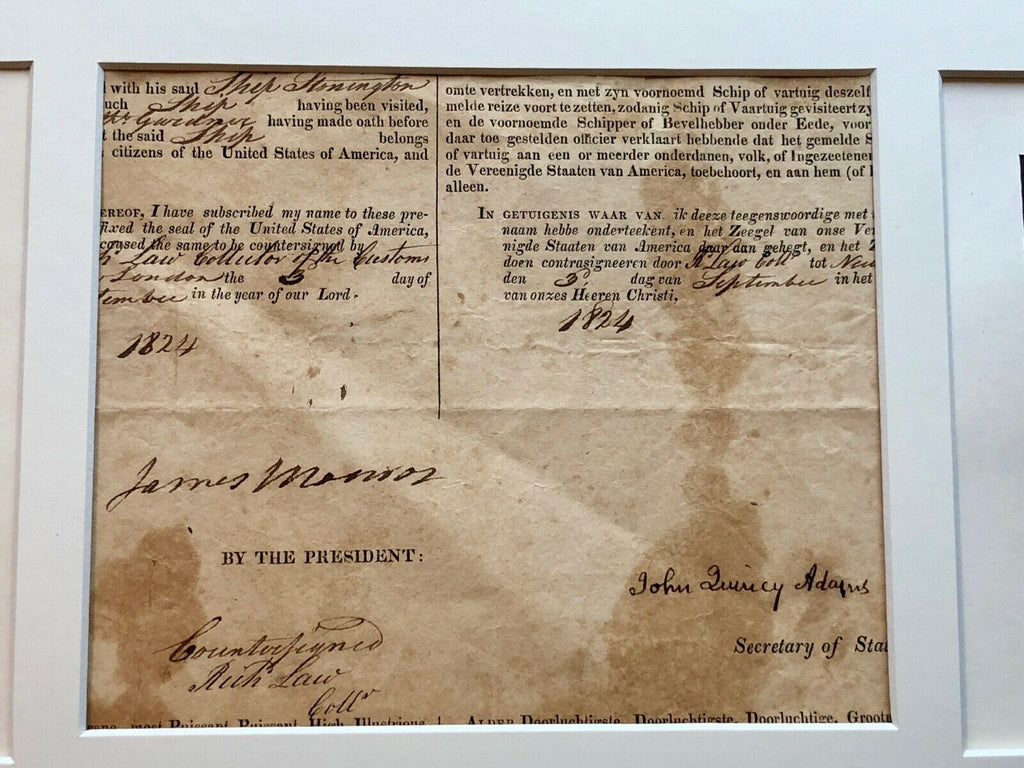 with his said Ship Stonington
uch Ship having been visited,
Gardner having made oath before
t the said Ship belongs
citizens of the United States of America, and
EREOF, I have subscribed my name to these pre-
fixed the seal of the United States of America,
caused the same to be countersigned by
h Law Collector of the Customs
London the 3 day of
tember in the year of our Lord.
1824
omte vertrekken, en met zyn voornoemd Schip of vartuig deszelf
melde reize voort te zetten, zodanig Schip of Vaartuig gevisiteert zy
en de voornoemde Schipper of Bevelhebber onder Eede, voor
daar toe gestelden officier verklaart hebbende dat het gemelde S
of vartuig aan een or meerder onderdanen, volk, of Ingezeetenen
de Vereenigde Staaten van America, toebehoort, en aan hem (of h
alleen.
IN GETUIGENIS WAAR VAN, ik deeze teegenswoordige met
naam hebbe onderteekent, en het Zeegel van onse Ver
nigde Staaten van America daar aan gehegt, en het Z
doen contrasigneeren door R Law Collr tot New
den 3d, dag van September in het
van onzes Heeren Christi,
1824
James Monroe
BY THE PRESIDENT:
John Quincy Adams
Secretary of Stat
Countersigned
Richd Law
Collr
most Puissant, Puissant, High, Illustrious
ALDER Doorluchtigste, Doorluchtigste, Doorluchtige, Groot